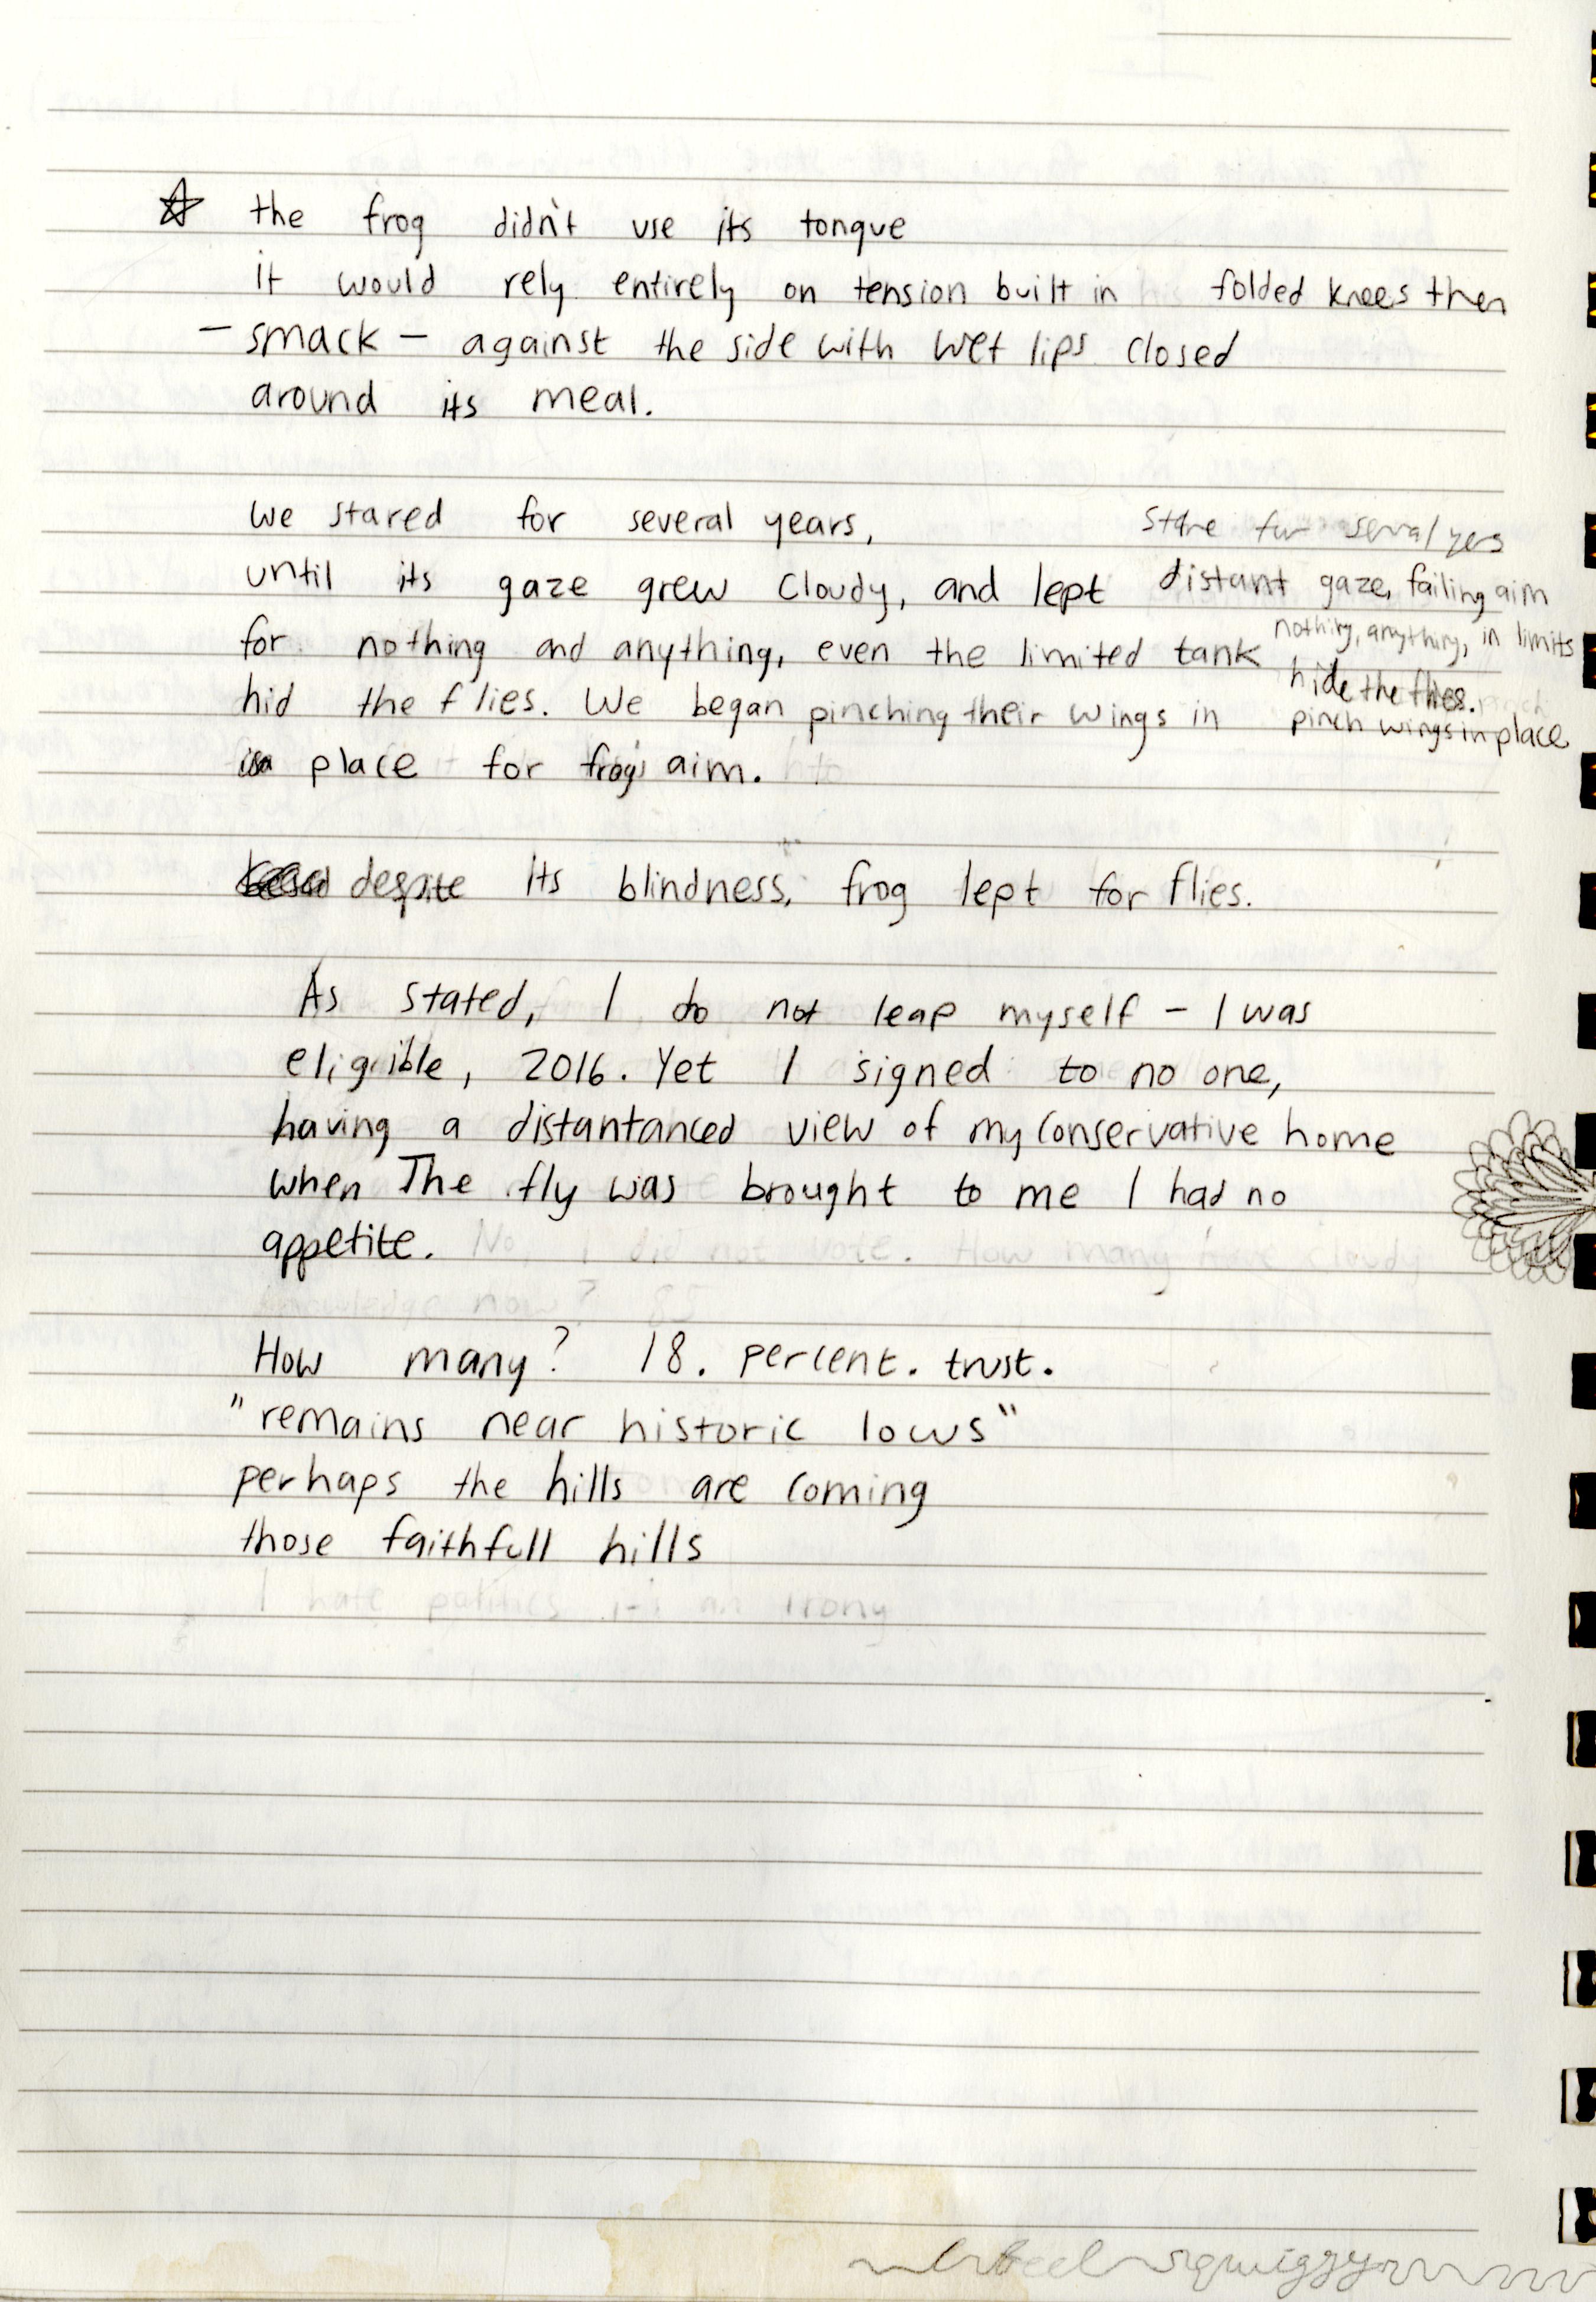 ☆ the frog didn't use its tongue
it would rely entirely on tension built in folded knees then
– smack – against the side with wet lips closed
around its meal.
we stared for several years,
until its gaze grew cloudy, and lept
for nothing and anything, even the limited tank
hid the flies. We began pinching their wings in
place for frog's aim.
stare for several yers
distant gaze, failing aim
nothing, anything, in limits
hide the flies.
pinch wings in place
despite its blindness, frog lept for flies.
As stated, I do not leap myself – I was
eligible, 2016. Yet I signed to no one,
having a distantanced view of my conservative home
when The fly was brought to me I had no
appetite. No, I did not vote. How many have cloudy
knowledge now? 85
How many? 18. percent. trust.
"remains near historic lows"
perhaps the hills are coming
those faithfull hills
I hate politics it's an irony
I feel squiggy